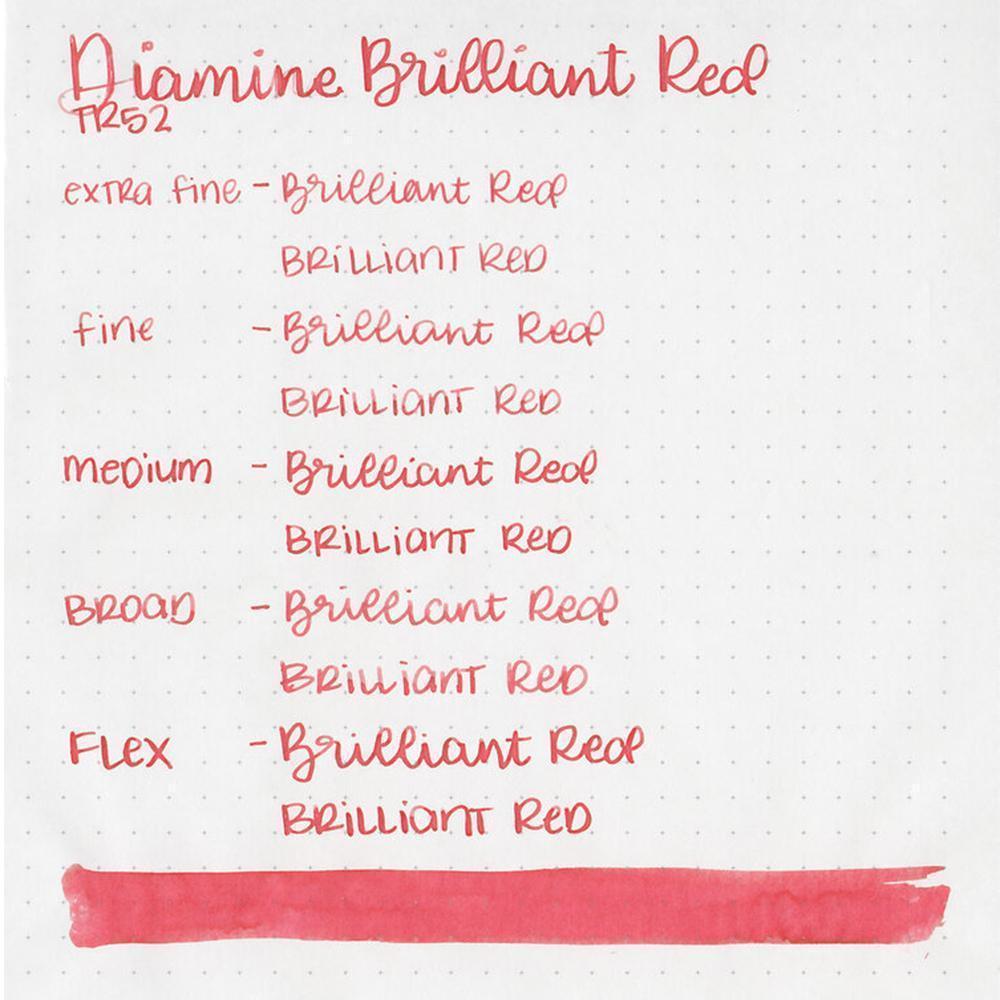 Diamine Brilliant Red
TR52
extra fine - Brilliant Red
BRILLIANT RED
fine - Brilliant Red
BRILLIANT RED
medium - Brilliant Red
BRILLIANT RED
BROAD - Brilliant Red
BRILLIANT RED
FLEX - Brilliant Red
BRILLIANT RED